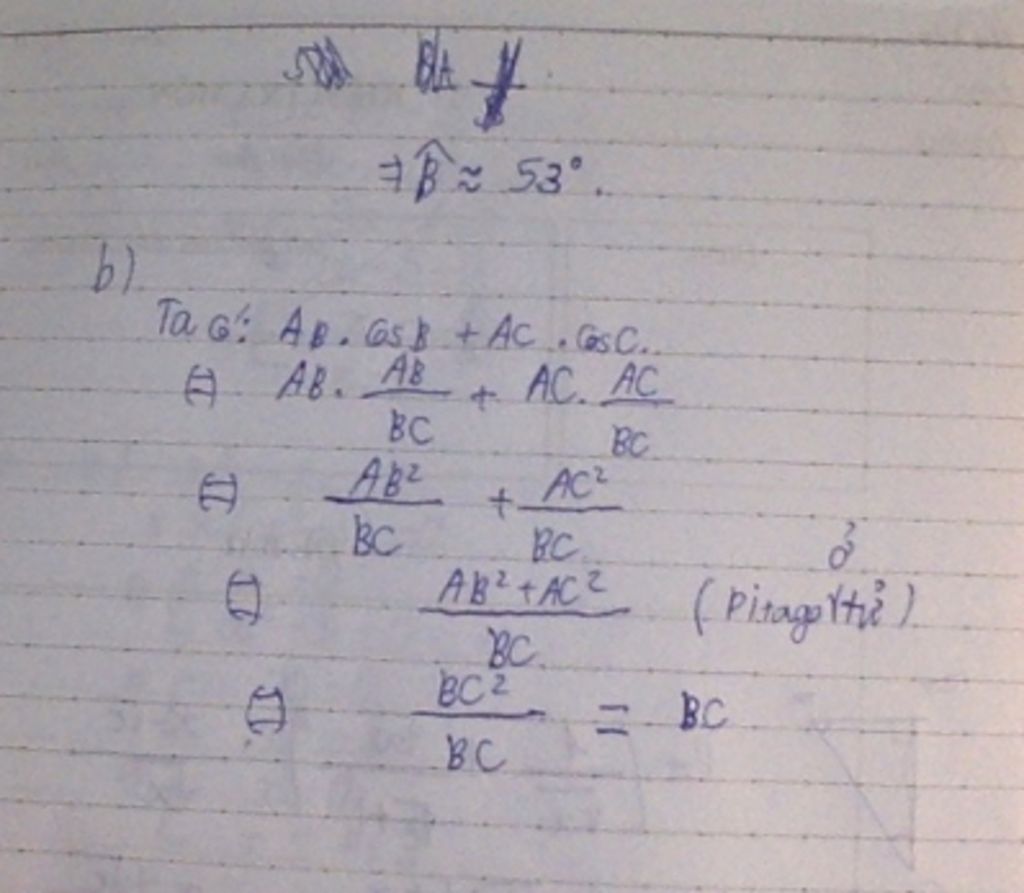 ⇒ B̂ ≈ 53°.
b)
Ta có: AB . cosB + AC . cosC.
⇔ AB . AB/BC + AC . AC/BC
⇔ AB²/BC + AC²/BC
ở
⇔ (AB² + AC²)/BC (Pitago tử)
⇔ BC²/BC = BC